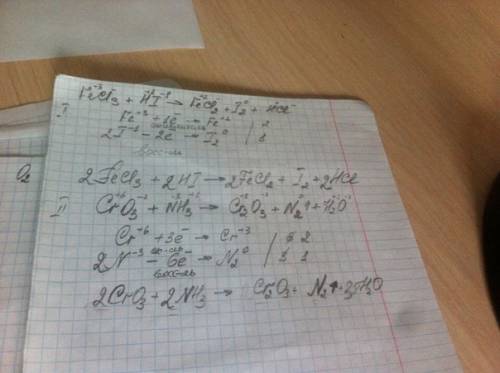 FeCl₃ + HI⁻¹ → FeCl₂ + I₂⁰ + HCl
I
Fe⁻³ + 1e → Fe⁻² | 2
2I⁻¹ − 2e → I₂⁰ | 1
восс-ль
2FeCl₃ + 2HI → 2FeCl₂ + I₂ + 2HCl
O₂
II CrO₃ + NH₃ → Cr₂O₃ + N₂↑ + H₂O
Cr⁻⁶ + 3e⁻ → Cr⁻³ | 6 2
2N⁻³ − 6e⁻ → N₂⁰ | 3 1
восс-ль
2CrO₃ + 2NH₃ → Cr₂O₃ + N₂↑ + 3H₂O